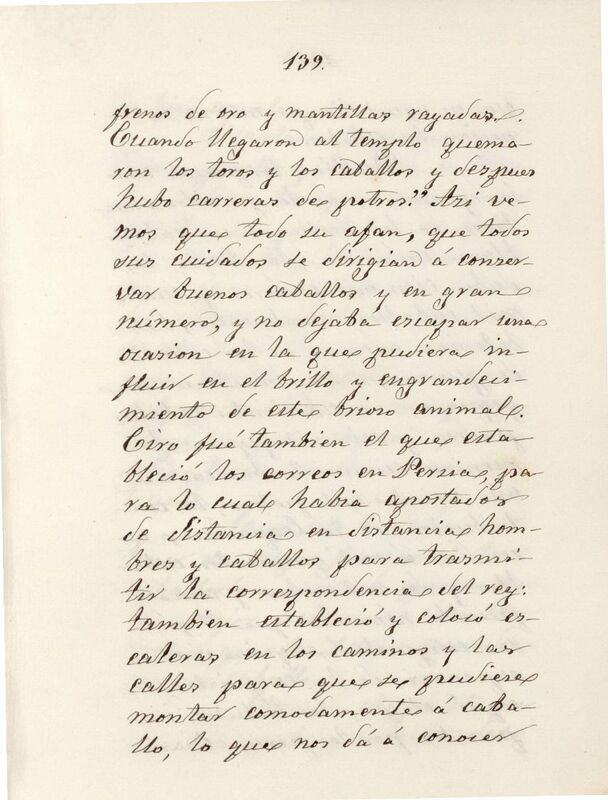 139.
frenos de oro y mantillas rayadas.
Cuando llegaron al templo quema-
ron los toros y los caballos y despues
hubo carreras de potros." Asi ve-
mos que todo su afan, que todos
sus cuidados se dirigian á conser-
var buenos caballos y en gran
número, y no dejaba escapar una
ocasion en la que pudiera in-
fluir en el brillo y engrandeci-
miento de este brioso animal.
Ciro fué tambien el que esta-
bleció los correos en Persia, pa
ra lo cual habia apostados
de distancia en distancia hom-
bres y caballos para trasmi-
tir la correspondencia del rey:
tambien estableció y colocó es-
caleras en los caminos y las
calles para que se pudiese
montar comodamente á caba-
llo, lo que nos dá á conocer